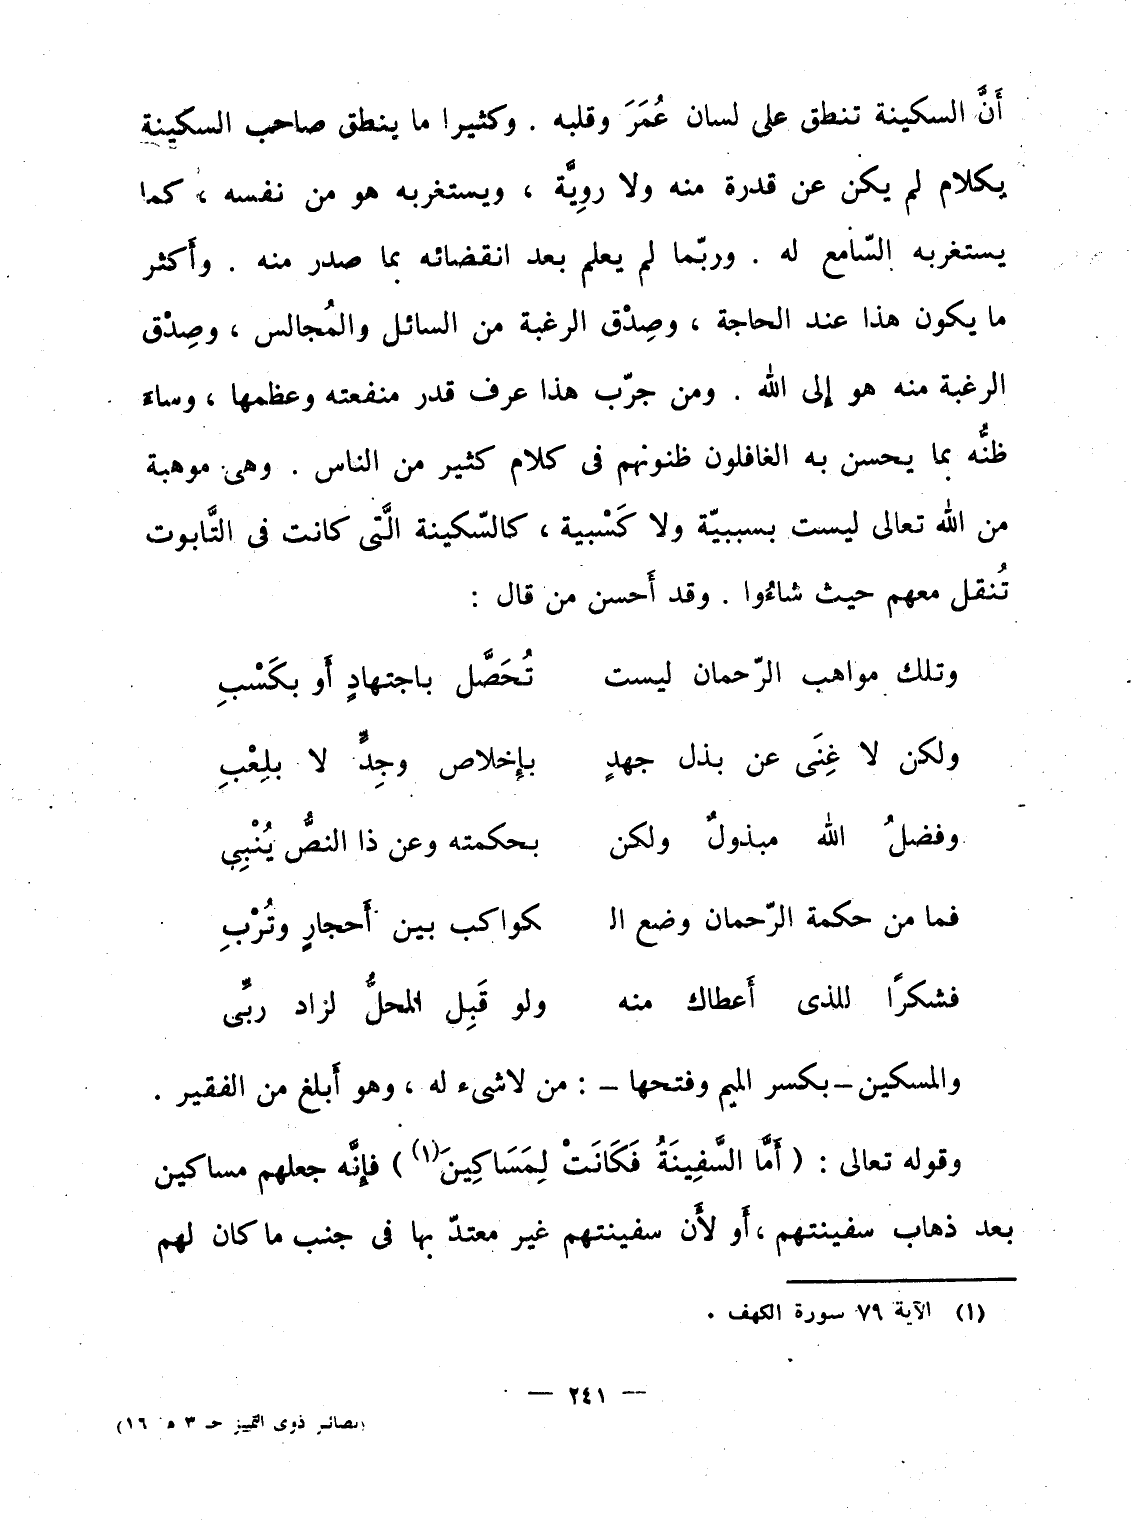 أَنَّ السكينة تنطق على لسان عُمَرَ وقلبه . وكثيرا ما ينطق صاحب السكينة
بكلام لم يكن عن قدرة منه ولا رويَّة ، ويستغربه هو من نفسه ، كما
يستغربه السّامع له . وربّما لم يعلم بعد انقضائه بما صدر منه . وأَكثر
ما يكون هذا عند الحاجة ، وصِدْق الرغبة من السائل والمُجالس ، وصِدْق
الرغبة منه هو إلى الله . ومن جرّب هذا عرف قدر منفعته وعظمها ، وساءَ
ظنُّه بما يحسن به الغافلون ظنونهم فى كلام كثير من الناس . وهى موهبة
من الله تعالى ليست بسببيّة ولا كَسْبية ، كالسّكينة الَّتى كانت فى التَّابوت
تُنقل معهم حيث شاءُوا . وقد أَحسن من قال :
وتلك مواهب الرّحمان ليست تُحَصَّل باجتهادٍ أَو بكَسْبِ
ولكن لا غِنَى عن بذل جهدٍ بإخلاص وجِدٍّ لا بلِعْبِ
وفضلُ الله مبذولٌ ولكن بحكمته وعن ذا النصُّ يُنْبِى
فما من حكمة الرّحمان وضع الـ كواكب بين أَحجارٍ وتُرْبِ
فشكرًا للذى أَعطاك منه ولو قَبِل المحلُّ لزاد ربِّى
والمسكين – بكسر الميم وفتحها – : من لاشىء له ، وهو أَبلغ من الفقير .
وقوله تعالى : ( أَمَّا السَّفِينَةُ فَكَانَتْ لِمَسَاكِينَ(١) ) فإنَّه جعلهم مساكين
بعد ذهاب سفينتهم ، أَو لأَن سفينتهم غير معتدّ بها فى جنب ما كان لهم
(١) الآية ٧٩ سورة الكهف .
— ٢٤١ —
(بصائر ذوى التمييز جـ ٣ م ١٦)